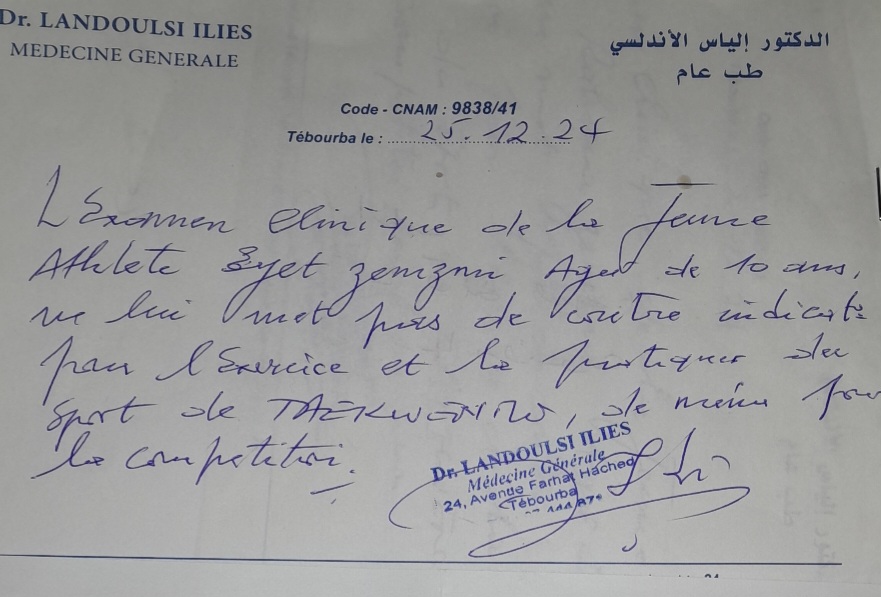 Dr. LANDOULSI ILIES
MEDECINE GENERALE
الدكتور إلياس الأندلسي
طب عام
Code - CNAM : 9838/41
Tébourba le : 25.12.24
L'Examen Clinique de la jeune
Athlete Eyet zemzmi Agée de 10 ans,
ne lui met pas de contre indicat°
pour l'Exercice et la pratique du
Sport de TAEKWENDO, de même pour
la competition.
Dr. LANDOULSI ILIES
Médecine Générale
24, Avenue Farhat Hached
Tébourba